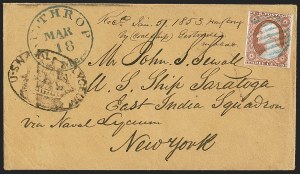 WINTHROP
MAR
18
Rec'd Jun. 9, 1853
by
U.S. NAVAL LYCEUM
Mr. John S. Sewall
U. S. Ship Saratoga
East India Squadron
via Naval Lyceum
New York